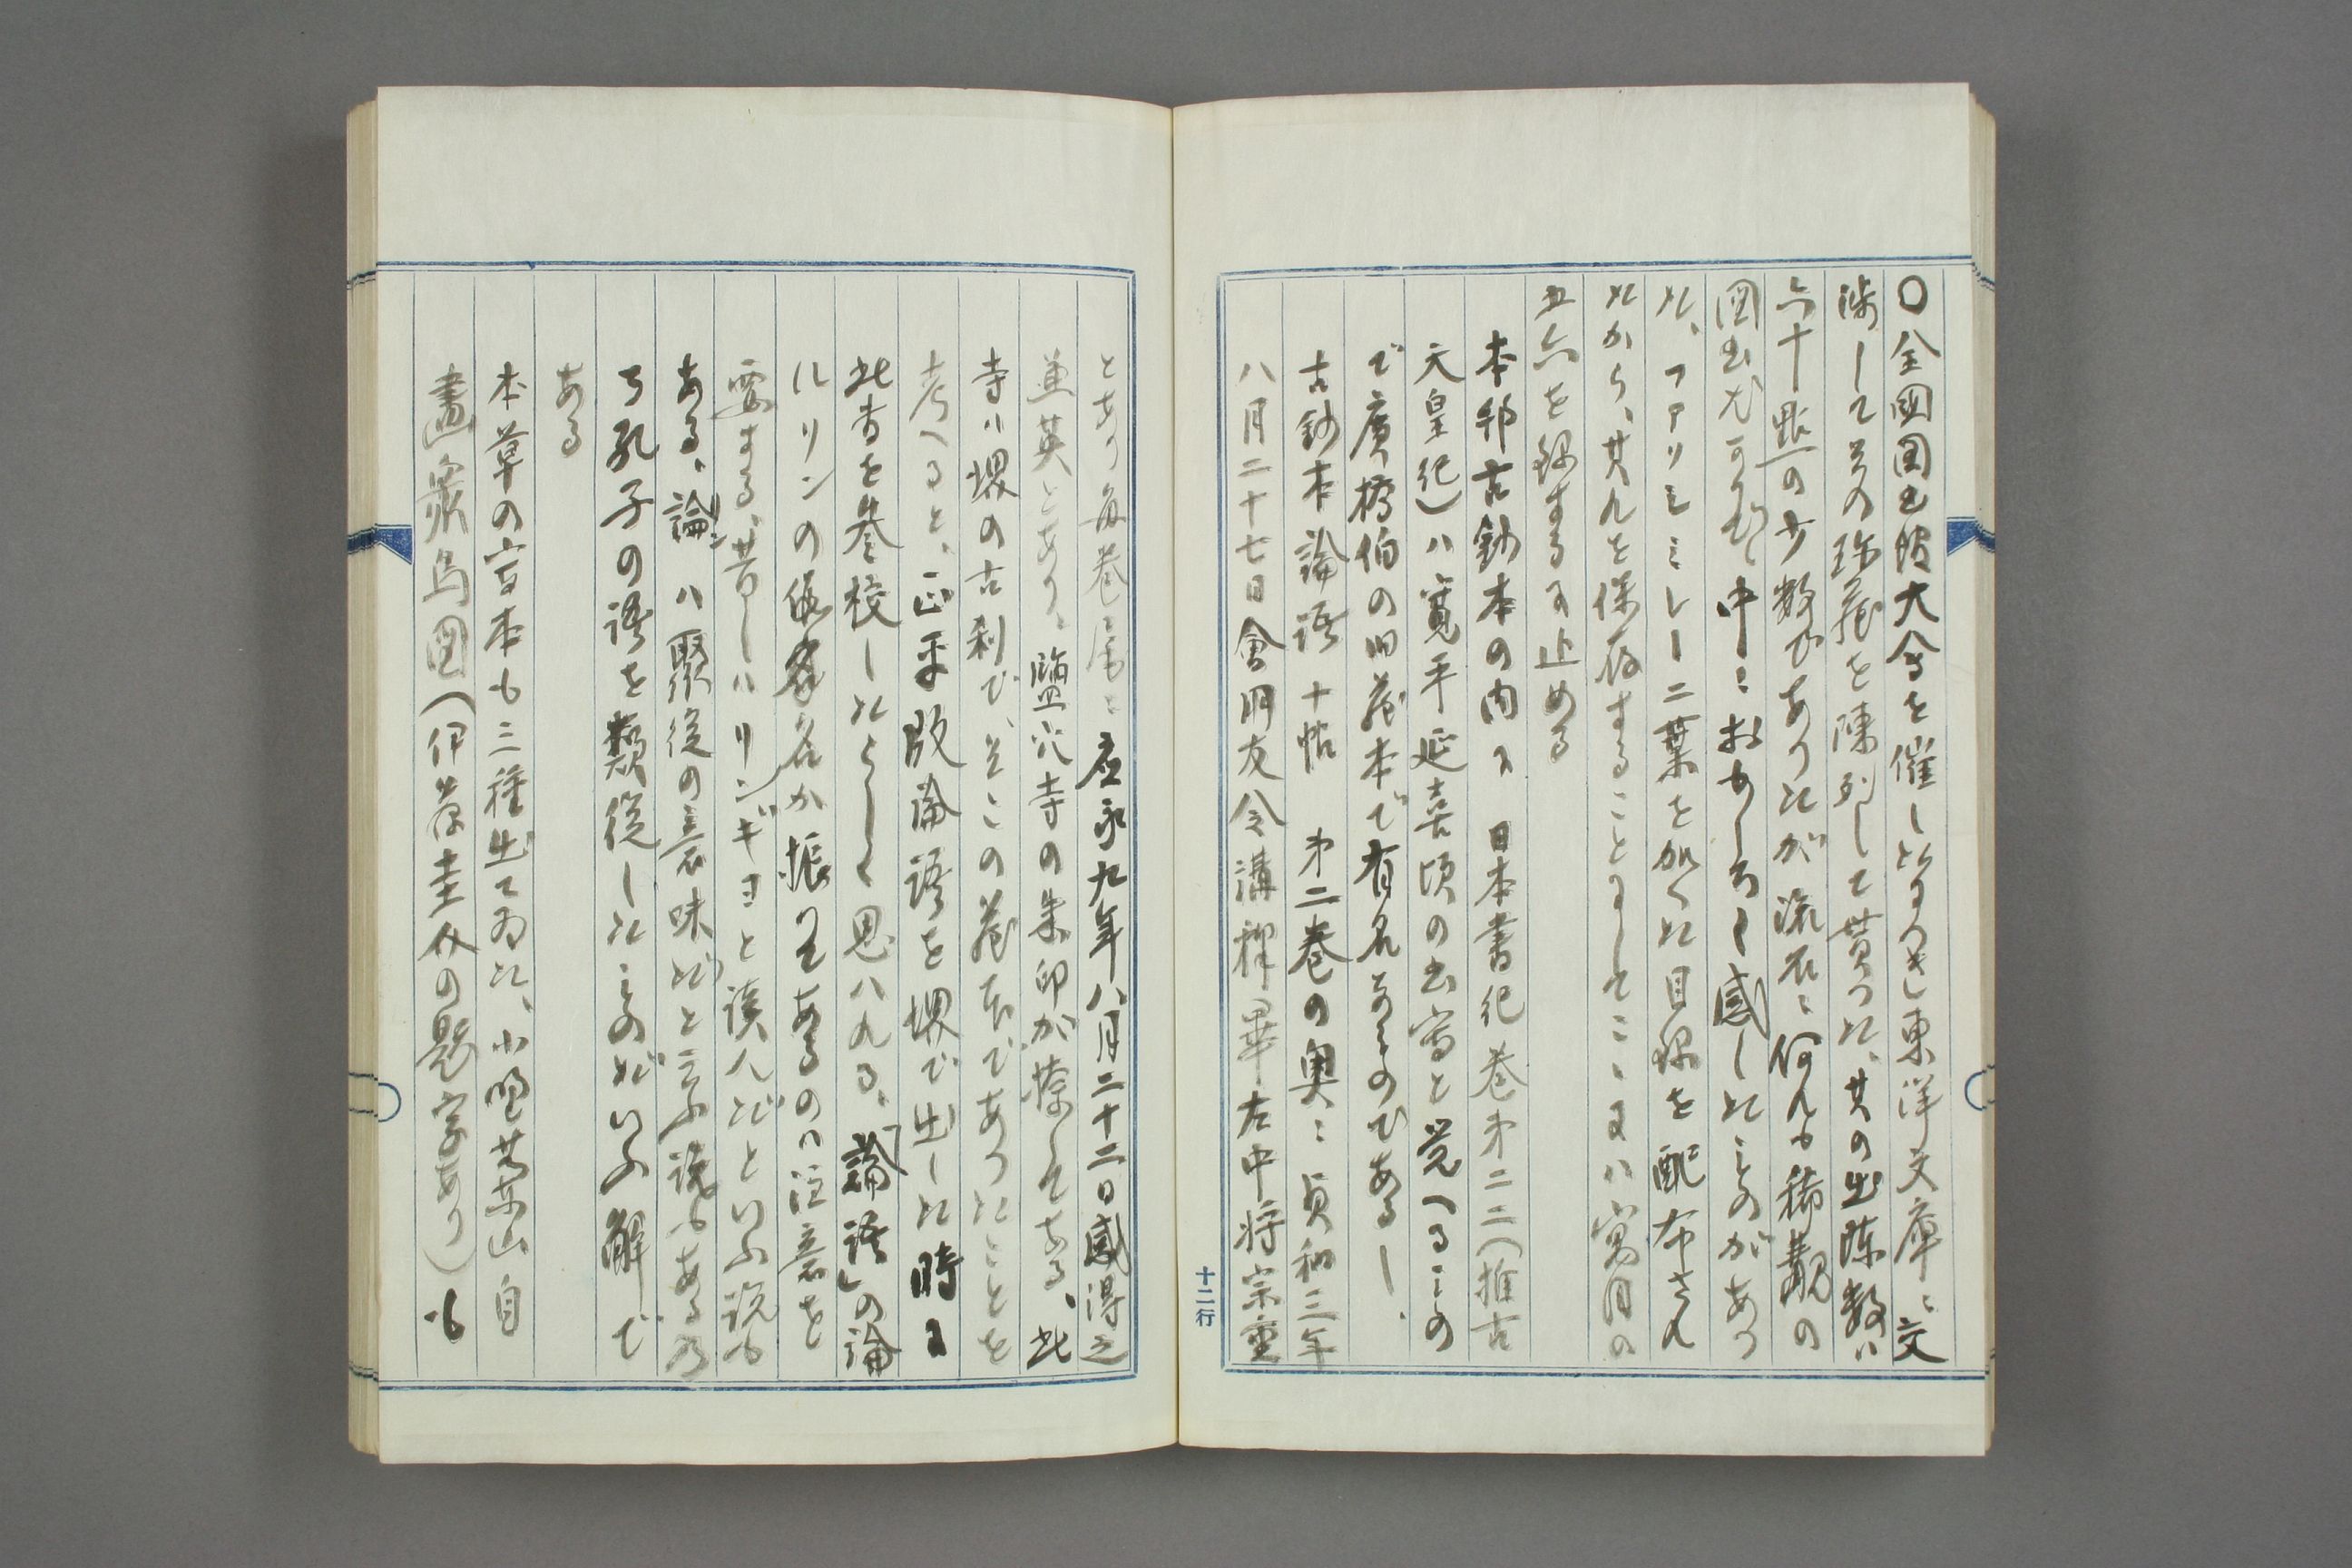 〇全國図書館大会を催したるつき東洋文庫ニ交
渉してその珍蔵を陳列して貰つた、其の出陳数ハ
六十點の少数でありたが流石ニ何れも稀覯の
図書だ、中ニおもしろく感じたものがあつ
た、ファクシミレー二葉を加へた目録を配布され
たから、其れを保存することにしてこゝにハ寓目の
五六を録するに止める
本邦古鈔本の内に 日本書紀巻第二二(推古
天皇紀)ハ寛平延喜頃の書写と覚へるもの
で廣橋伯の旧蔵本で有名なものである―、
古鈔本論語 十帖 第二巻の奥ニ貞和三年
八月二十七日會朋友令講釋畢左中将宗重
十二行
とあり毎巻尾ニ應永九年八月二十二日感得之
道英とあり、鹽穴寺の朱印が捺してある、此
寺ハ堺の古刹で、そこの蔵本であつたことを
考へると、正平版論語を堺で出した時に
此書を参校したらしく思ハれる、「論語」の論
ハリンの仮名が振てあるのハ注意を
要する、昔しハリンギヨと讀んだといふ説も
ある、論リンハ聚従の意味だと云ふ説もある乃
ち孔子の語を類従したものだといふ解で
ある
本草の写本も三種出てゐた、小野蘭山自
畫衆鳥図(伊藤圭介の題字あり)も